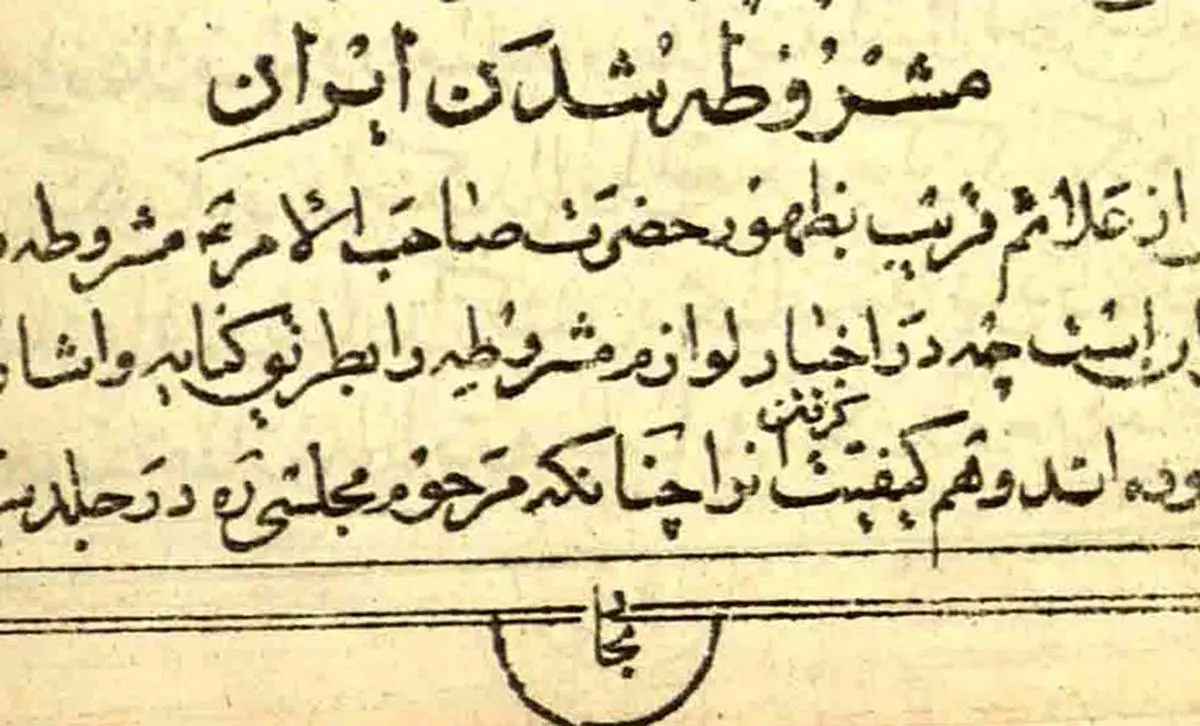 مشروطه شدن ایران
از علائم قریب بظهور حضرت صاحب الامر عج مشروطه
است چه در اخبار لوازم مشروطه را بطریق کنایه و اشا
وده اند و هم کیفیت گرفتن انرا چنانکه مرحوم مجلسی ره در جلد
بحا